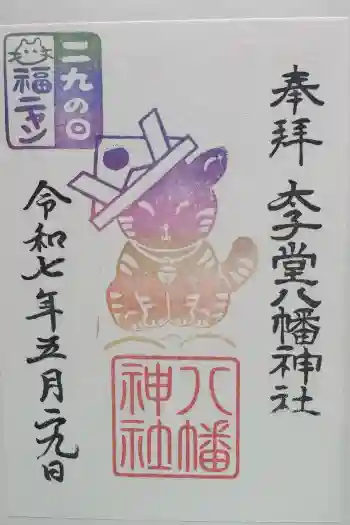 奉拝
太子堂八幡神社
二九の日
福ニャン
八幡
神社
令和七年五月二九日